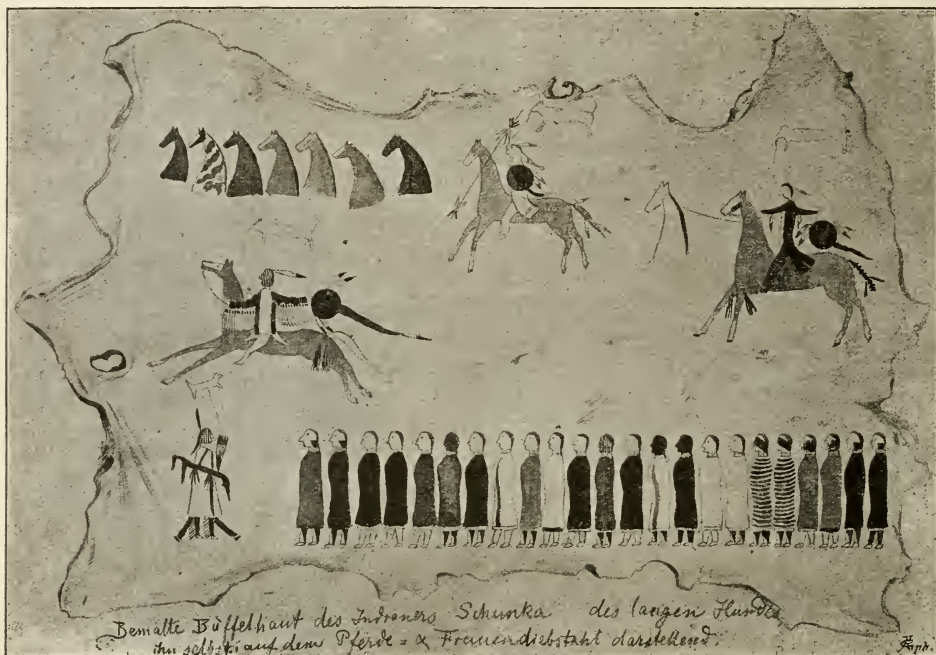 Bemalte Büffelhaut des Indianers Schunka des langen Hundes
ihn selbst auf dem Pferde- & Frauendiebstahl darstellend.